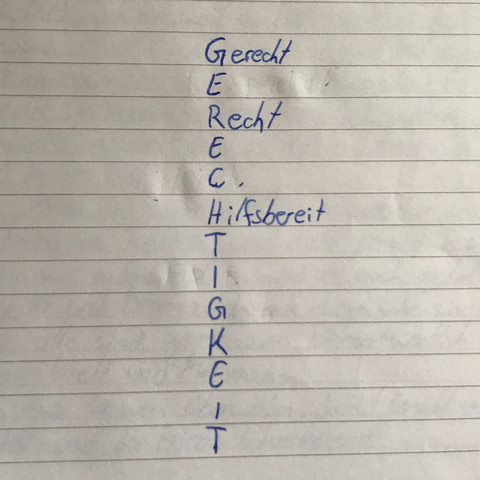 Gerecht
E
Recht
E
C.
Hilfsbereit
T
I
G
K
E
I
T